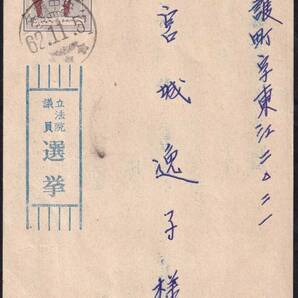 護町字東江二〇二一
宮城逸子様
62.11.5
立法院
議員
選挙